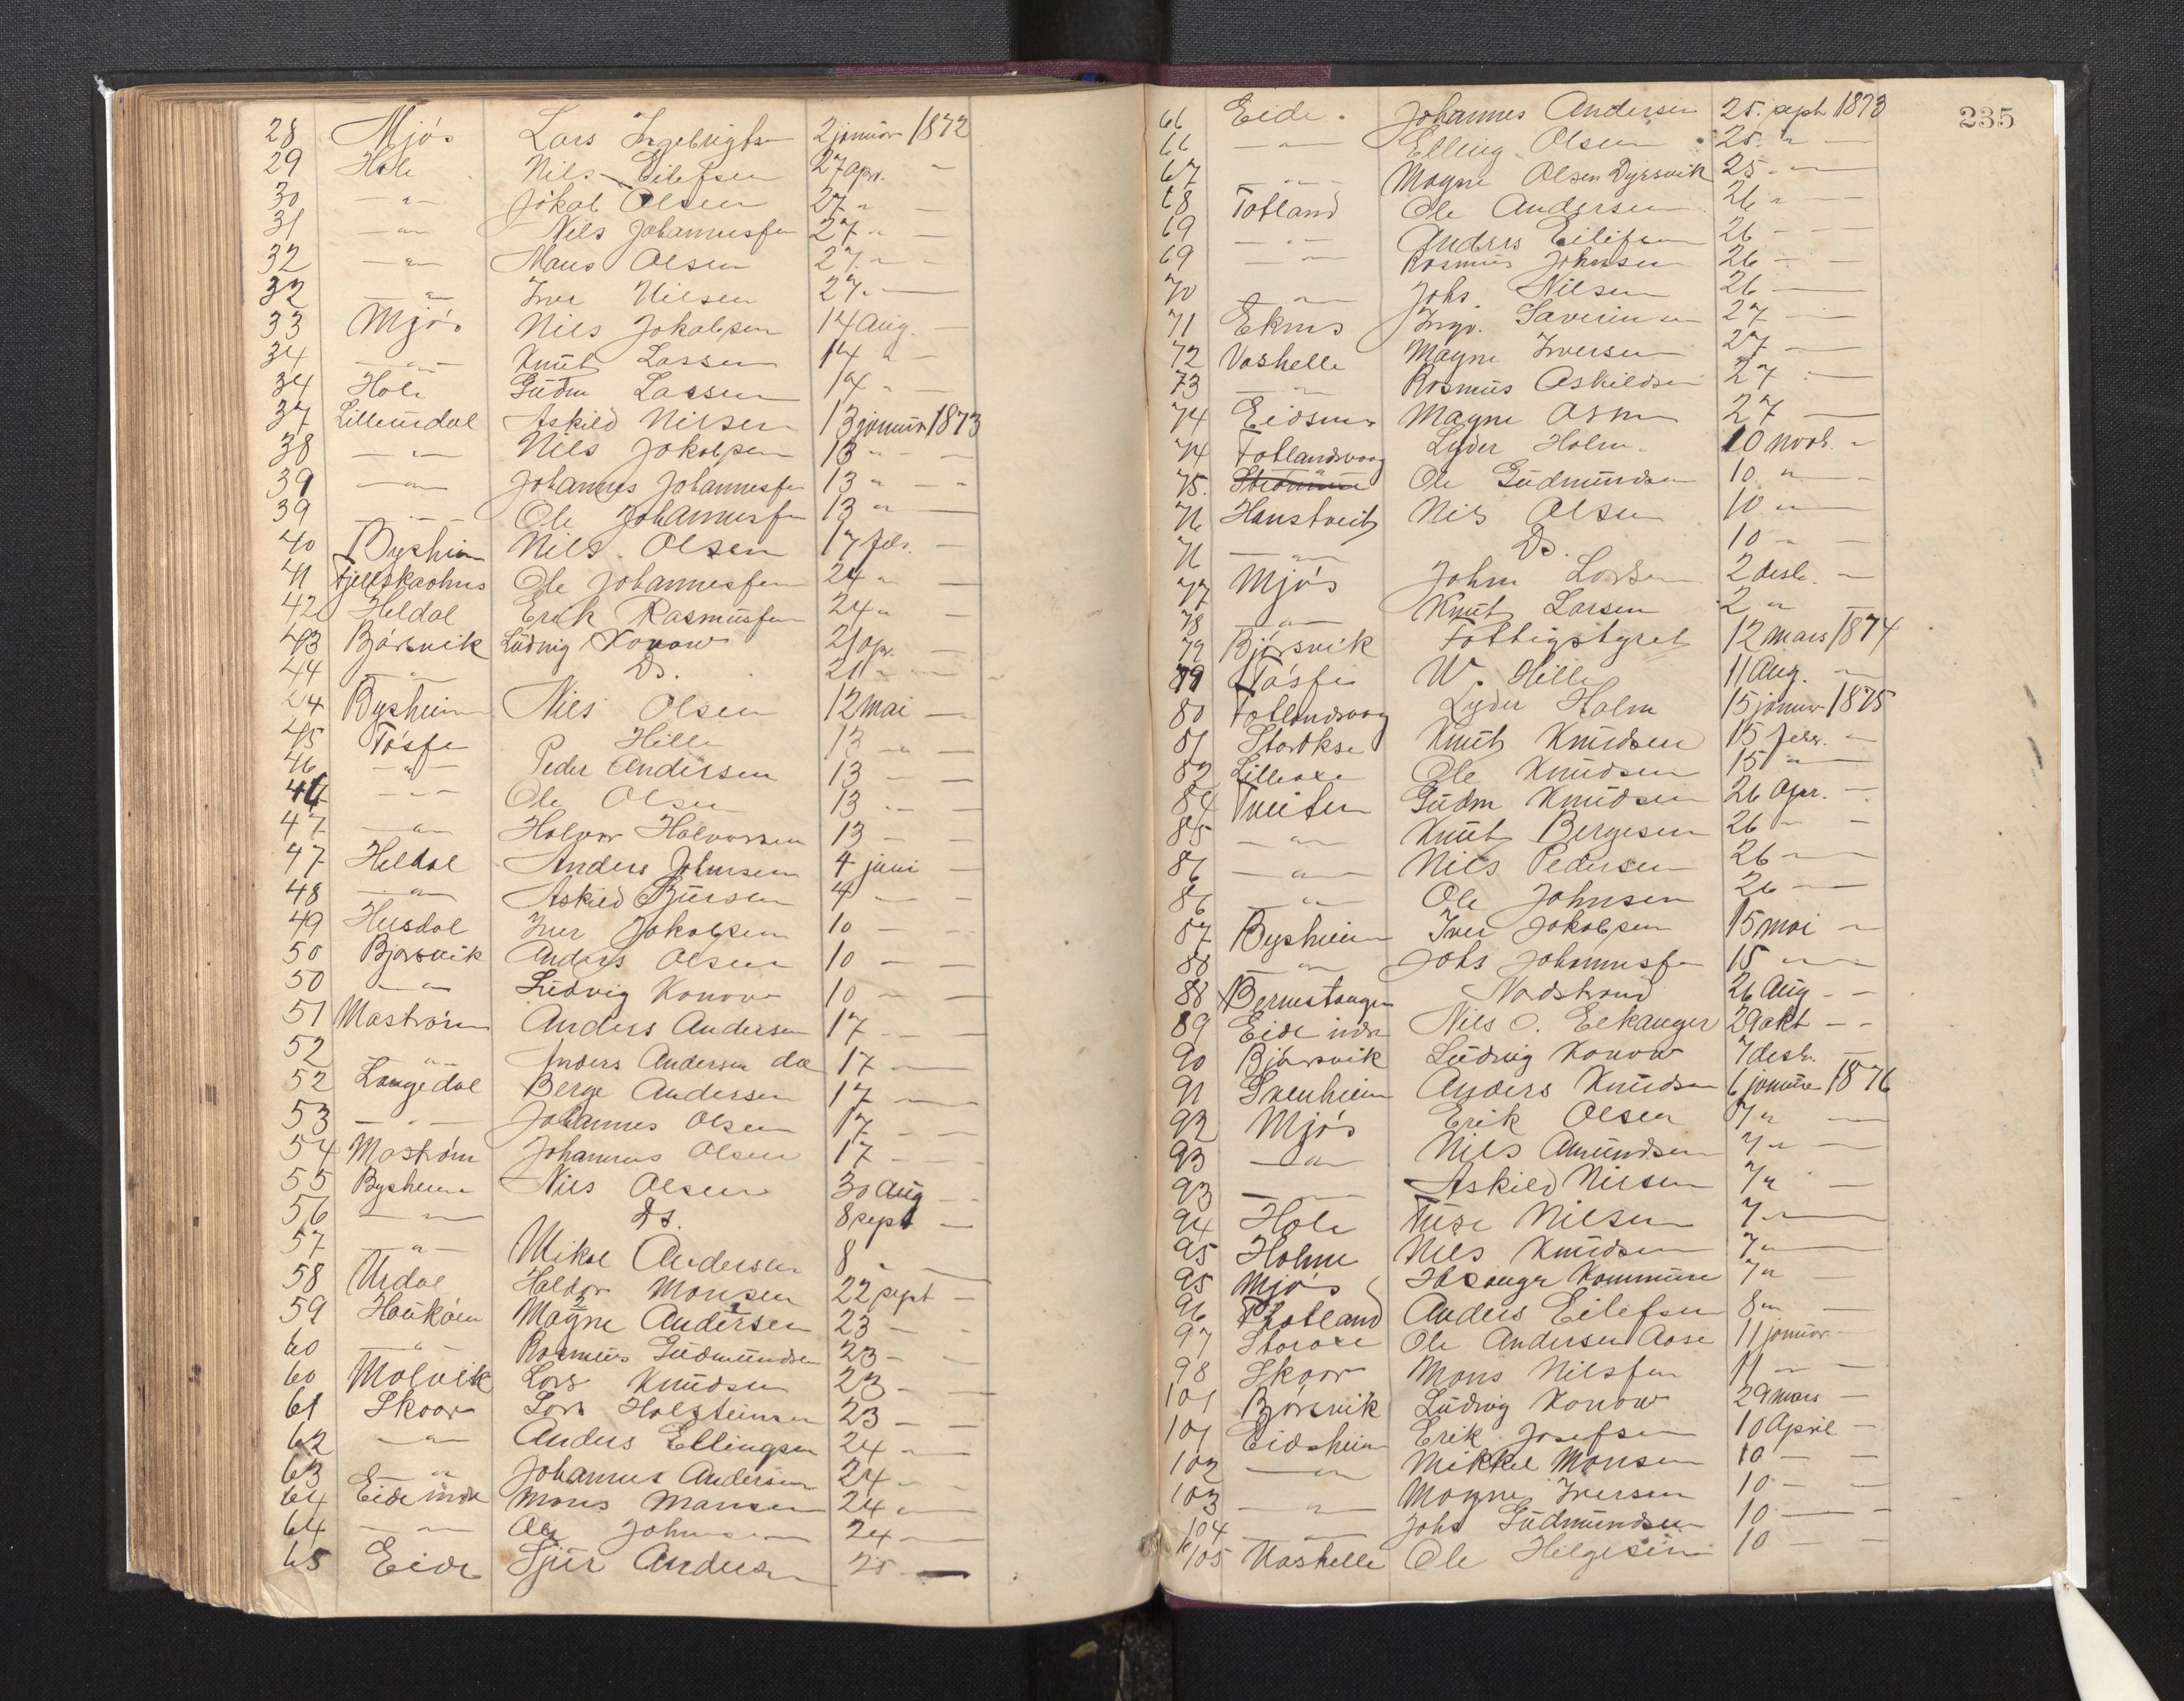 28 Mjós Lars Ingebrigtsen 2 januar 1872
29 Hole Nils Eilefsen 27 apr. —
30 — " — Jakob Olsen 27 " —
31 — " — Nils Johannesfen 27 " —
32 — " — Mans Olsen 27 " —
32 — " — Iver Nilsen 27 " —
33 Mjós Nils Jakobsen 14 Aug. —
34 — " — Knut Lassen 14 " —
34 Hole Gudm Lassen 14 " —
37 Lilleurdal Askild Nilsen 13 januar 1873
38 — " — Nils Jakobsen 13 " —
39 — " — Johannes Johannesfen 13 " —
39 — " — Ole Johannesfen 13 " —
40 Bysheim Nils Olsen 17 febr. —
41 Fjellskaalnes Ole Johannesfen 24 " —
42 Heldal Erik Rasmusfen 24 " —
43 Bjórsvik Ludvig Konow 21 apr. —
44 — " — Ds. 21 " —
44 Bysheim Nils Olsen 12 mai —
45 Tósse Hille 13 " —
46 — " — Peder Andersen 13 — —
46 — " — Ole Olsen 13 " —
47 — " — Halvor Halvorsen 13 — —
47 Heldal Anders Johnsen 4 juni —
48 — " — Askild Sjursen 4 — —
49 Husdal Iver Jakobsen 10 — —
50 Bjorsvik Anders Olsen 10 — —
50 — " — Ludvig Konow 10 — —
51 Mastróm Anders Andersen 17 — —
52 — " — Anders Andersen 17 — —
52 Langedal Berge Andersen 17 — —
53 — " — Johannes Olsen 17 — —
54 Mastróm Johannes Olsen 17 — —
55 Bysheim Nils Olsen 30 Aug —
56 — " — Ds. 8 sept —
57 — " — Mikal Andersen 8 " —
58 Urdal Haldor Monsen 22 sept —
59 Haukóen Magne Andersen 23 — —
60 — " — Rasmus Gudmundsen 23 — —
60 Molvik Lars Knudsen 23 — —
61 Skaar Lars Holsteinsen 23 — —
62 — " — Anders Ellingsen 24 " —
63 — " — Johannes Andersen 24 " —
64 Eide indr Mons Mansen 24 " —
64 — " — Ole Johnsen 24 —
65 Eide Sjur Andersen 25 —
235
66 Eide Johannes Andersen 25. sept 1873
66 — " — Elling Olsen 25. " —
67 — " — Magne Olsen Dyrsvik 25 " —
68 Totland Ole Andersen 26 " —
69 — " — Anders Eilifsen 26 — —
69 — " — Rasmus Johnsen 26 — —
70 — " — Johs. Nilsen 26 —
71 Eknes Ingv. Saverinsen 27 —
72 Vashelle Magne Iversen 27 —
73 — " — Rasmus Askildsen 27 —
74 Eidsnes Magne 27 —
74 Totlandsvaag Lyder Holm 10 novb. "
75. Ole Gudmundsen 10 " —
76 Haustveit Nils Olsen 10 " —
76 — " — Ds. 10 " —
77 Mjós John Larsen 2 desb. —
78 — " — Knut Larsen 2 " —
79 Bjórsvik Fattigstyret 12 mars 1874
79 Tósse W. Hille 11 Aug. —
80 Totlandsvaag Lyder Holm 15 januar 1875
81 Storokse Knut Knudsen 15 febr. —
82 Lilleoxe Ole Knudsen 15 " —
84 Tveiten Gudm Knudsen 26 Apr. —
85 — " — Knut Bergesen 26 — —
86 — " — Nils Pedersen 26 — —
86 — " — Ole Johnsen 26 — —
87 Bysheim Iver Jakobsen 15 mai —
88 — " — Johs Johannesfen 15 " —
88 Bernestangen Nordstrand 26 Aug — —
89 Eide indr Nils O. Eekanger 29 okt — —
90 Bjórsvik Ludvig Konow 7 desb. —
91 Sveuheim Anders Knudsen 6 januar 1876
92 Mjós Erik Olsen 7 " —
93 — " — Nils Amundsen 7 " —
93 — " — Askild Nilsen 7 " —
94 Hole Nilsen 7 " —
95 Holme Nils Knudsen 7 " —
95 Mjós Kommune 7 " —
96 Totland Anders Eilefsen 8 " —
97 Storoxe Ole Andersen Aase 11 januar —
98 Skaar Mons Nilsfen 11 " —
101 Bjórsvik Ludvig Konow 29 mars —
101 Eidsheim Erik Josefsen 10 April —
102 — " — Mikkel Monsen 10 — —
103 — " — Magne Iversen 10 — —
104 — " — Johs Gudmundsen 10 — —
105 Vashelle Ole Helgesen 10 — —